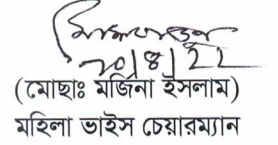 ২০/৪/22
(মোছাঃ মর্জিনা ইসলাম)
মহিলা ভাইস চেয়ারম্যান